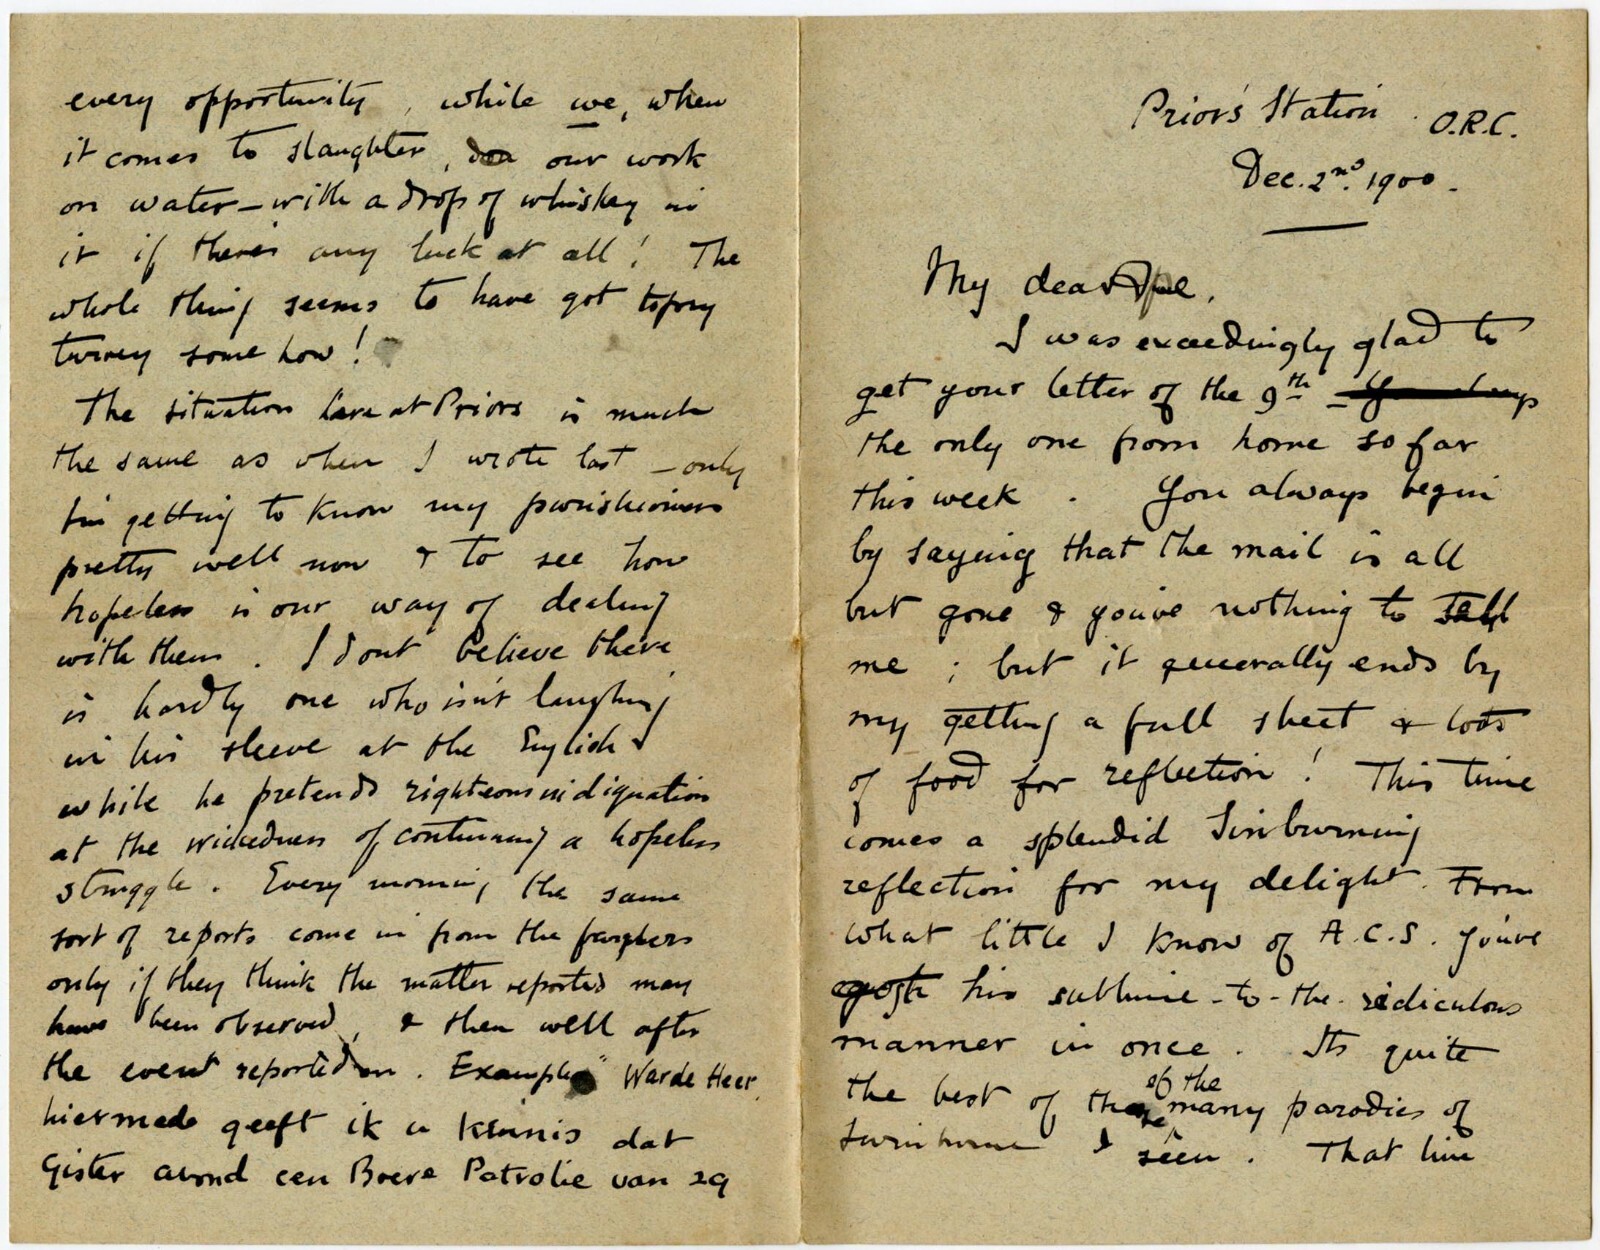 Prior's Station O.R.C.
Dec. 2nd. 1900.
My dear
I was exceedingly glad to
get your letter of the 9th
the only one from home so far
this week. You always begin
by saying that the mail is all
but gone & you've nothing to tell
me; but it generally ends by
my getting a full sheet & lots
of food for reflection! This time
comes a splendid Swinburning
reflection for my delight. From
what little I know of A.C.S. you've
his sublime-to-the-ridiculous
manner in once. Its quite
the best of the of the many parodies of
Swinburne I seen. That line
every opportunity, while we, when
it comes to slaughter, do our work
on water – with a drop of whiskey in
it if there's any luck at all! The
whole thing seems to have got topsy
turvey some how!
The situation here at Priors is much
the same as when I wrote last – only
I'm getting to know my parishioners
pretty well now & to see how
hopeless is our way of dealing
with them. I don't believe there
is hardly one who isn't laughing
in his sleeve at the English
while he pretends righteous indignation
at the wickedness of continuing a hopeless
struggle. Every morning the same
sort of reports come in from the farmers
only if they think the matter reported may
have been observed, & then well after
the event reported on. Example "Warde Heer,
hiermede geeft ik u kennis dat
Gister avond een Boere Patrolie van 29